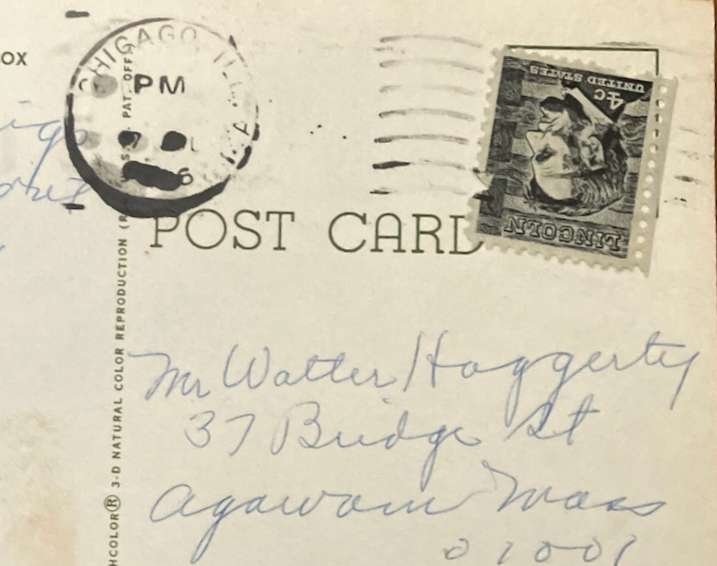 OX
CHICAGO, ILL.
PM
UNITED STATES
4c
LINCOLN
POST CARD
HCOLOR® 3-D NATURAL COLOR REPRODUCTION (R
PAT. OFF
Mr Walter Haggerty
37 Bridge St
Agawam Mass
01001